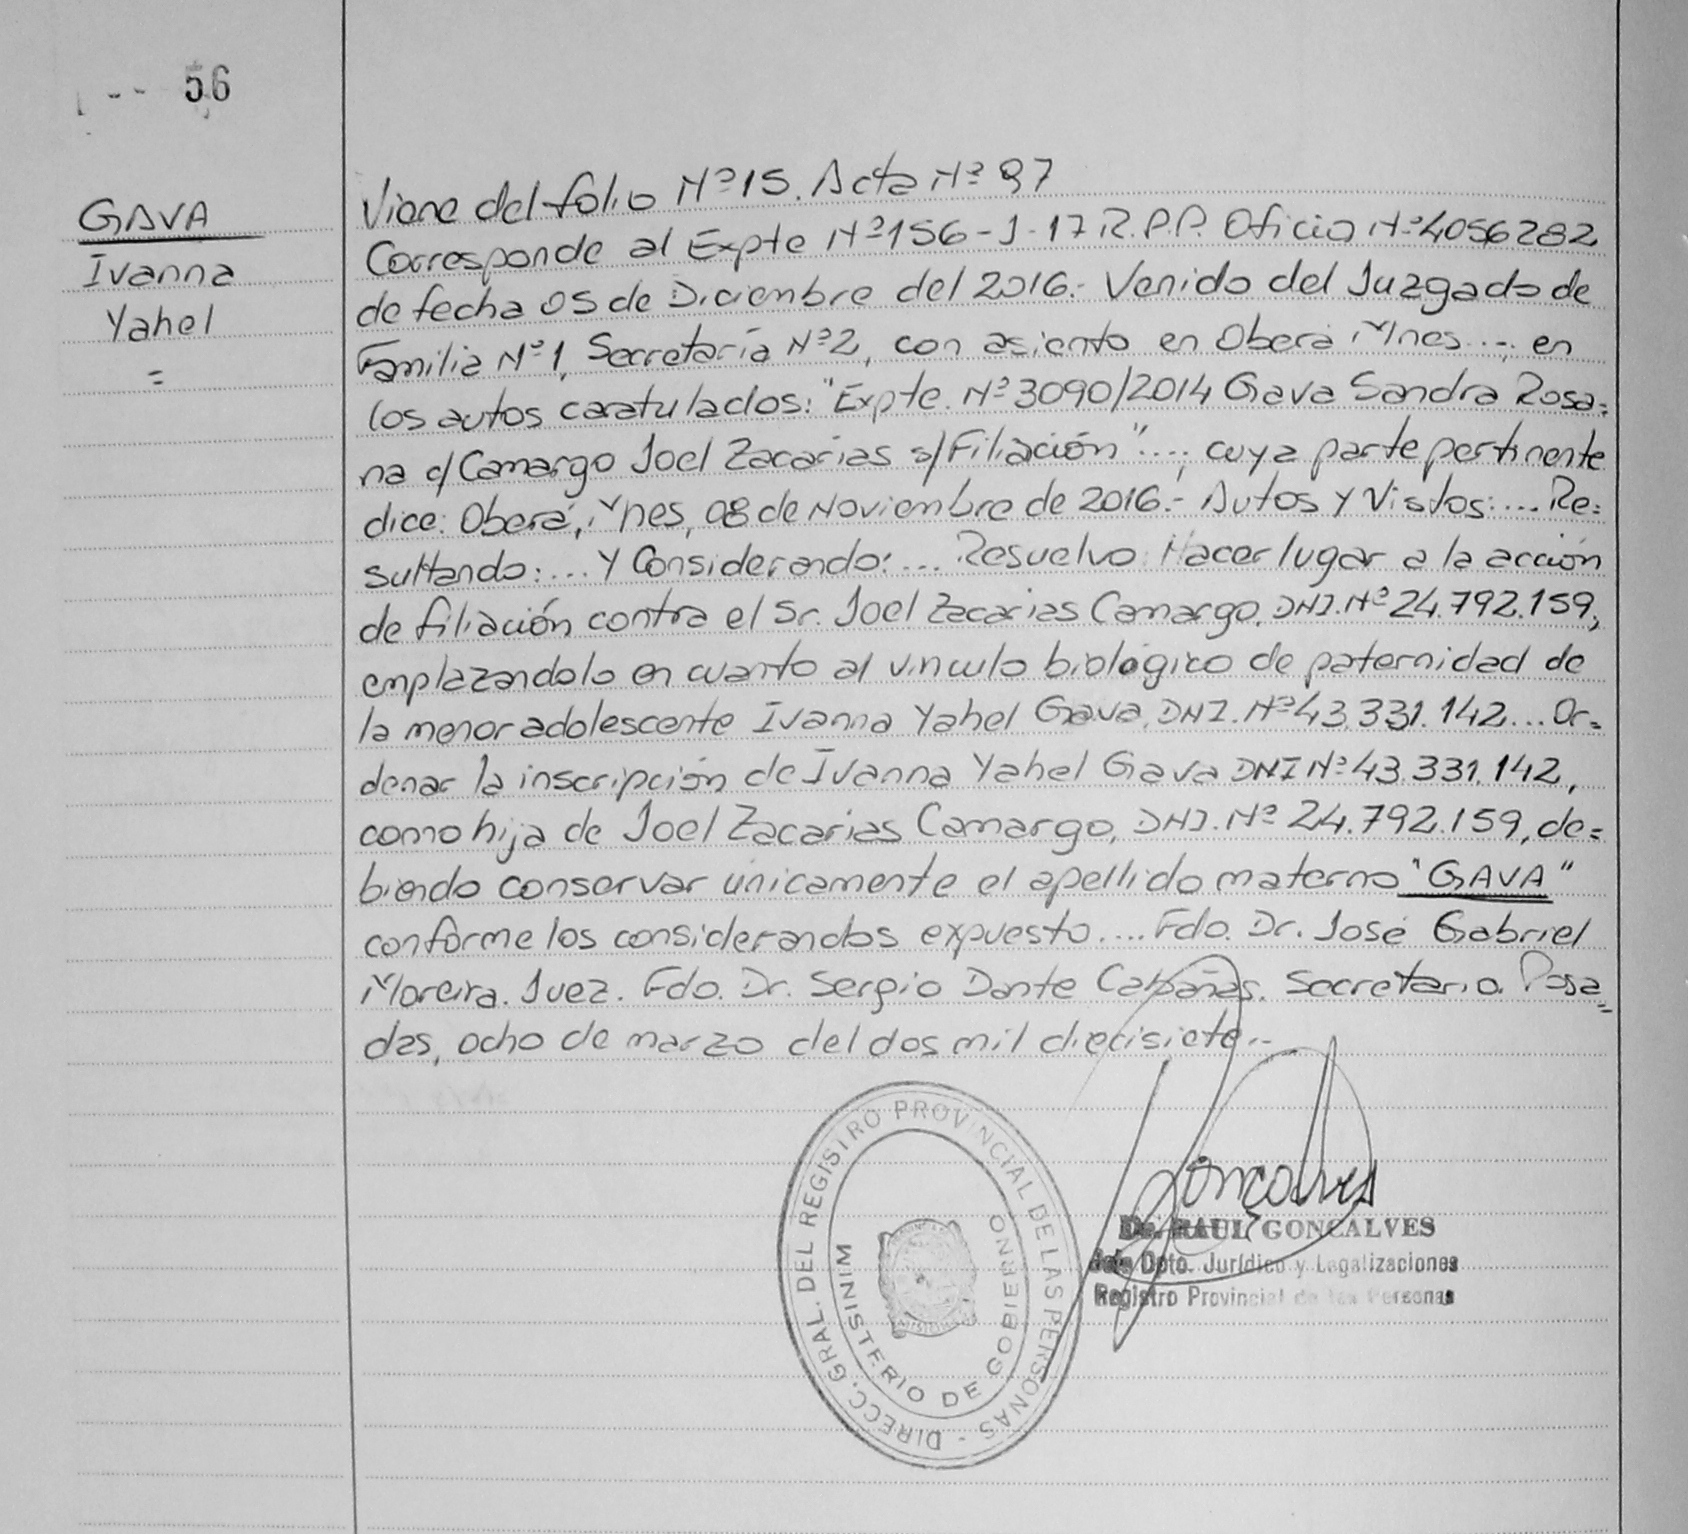 56
GAVA
Ivanna
Yahel
=
Viene del folio Nº 15. Acta Nº 87
Corresponde al Expte Nº 156-J-17 R.P.P. Oficio Nº 4056282
de fecha 05 de Diciembre del 2016.- Venido del Juzgado de
Familia Nº 1, Secretaría Nº 2, con asiento en Oberá Mnes...; en
los autos caratulados: "Expte. Nº 3090/2014 Gava Sandra Rosa=
na c/ Camargo Joel Zacarias s/ Filiación"...; cuya parte pertinente
dice: Oberá, Mnes, 08 de Noviembre de 2016.- Autos y Vistos:... Re=
sultando:... Y Considerando:... Resuelvo: Hacer lugar a la acción
de filiación contra el Sr. Joel Zacarias Camargo, DNI. Nº 24.792.159;
emplazandolo en cuanto al vinculo biológico de paternidad de
la menor adolescente Ivanna Yahel Gava, DNI. Nº 43.331.142... Or=
denar la inscripción de Ivanna Yahel Gava DNI Nº 43.331.142,
como hija de Joel Zacarias Camargo, DNI. Nº 24.792.159, de=
biendo conservar unicamente el apellido materno "GAVA"
conforme los considerandos expuesto.... Fdo. Dr. José Gabriel
Moreira. Juez. Fdo. Dr. Sergio Dante Cabañas. Secretario. Posa=
das, ocho de marzo del dos mil diecisiete.-
DIRECC. GRAL. DEL REGISTRO PROVINCIAL DE LAS PERSONAS -
MINISTERIO DE GOBIERNO
MISIONES
Gonçalves
Dr. RAUL GONCALVES
Jefe Dpto. Jurídico y Legalizaciones
Registro Provincial de las Personas